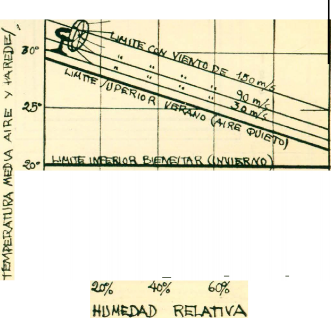 TEMPERATURA MEDIA AIRE Y PAREDES
30°
25°
20°
LIMITE CON VIENTO DE 150 m/s
" " " " 90 m/s
" " " " 30 m/s
LIMITE SUPERIOR VERANO (AIRE QUIETO)
LIMITE INFERIOR BIENESTAR (INVIERNO)
20% 40% 60%
HUMEDAD RELATIVA